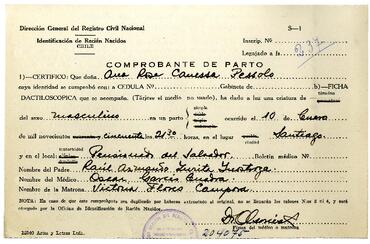 Dirección General del Registro Civil Nacional
S—1
Identificación de Recién Nacidos
CHILE
Inscrip. Nº
Legajado a fs.
237
COMPROBANTE DE PARTO
1)—CERTIFICO: Que doña Ana Rosa Canessa Pessolo
cuya identidad se comprobó con: a CEDULA Nº Gabinete de b) FICHA
DACTILOSCOPICA que se acompaña. (Tárjese el medio no usado), ha dado a luz una criatura de
del sexo masculino en un parto simple ocurrido el 10 de Enero
de mil novecientos cincuenta 21:30 horas, en el lugar Santiago
y en el local: Pensionado del Salvador Boletín médico Nº
Nombre del Padre Raúl Armando Zurita Inostroza
Nombre del Médico Oscar García Guadra
Nombre de la Matrona Victoria Flores Campora
NOTA: En caso de que este comprobante sea duplicado por haberse extraviado el original, no se llenarán los talones Nos 2 ó 4, y será
otorgado por la Oficina de Identificación de Recién Nacidos.
204075